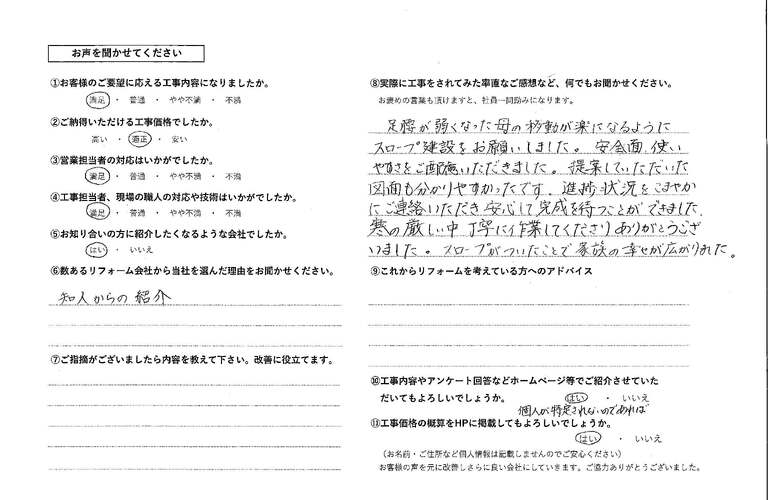 お声を聞かせてください
①お客様のご要望に応える工事内容になりましたか。
満足 ・ 普通 ・ やや不満 ・ 不満
②ご納得いただける工事価格でしたか。
高い ・ 適正 ・ 安い
③営業担当者の対応はいかがでしたか。
満足 ・ 普通 ・ やや不満 ・ 不満
④工事担当者、現場の職人の対応や技術はいかがでしたか。
満足 ・ 普通 ・ やや不満 ・ 不満
⑤お知り合いの方に紹介したくなるような会社でしたか。
はい ・ いいえ
⑥数あるリフォーム会社から当社を選んだ理由をお聞かせください。
知人からの紹介
⑦ご指摘がございましたら内容を教えて下さい。改善に役立てます。
⑧実際に工事をされてみた率直なご感想など、何でもお聞かせください。
お褒めの言葉も頂けますと、社員一同励みになります。
足腰が弱くなった母の移動が楽になるように
スロープ建設をお願いしました。安全面、使い
やすさをご配慮いただきました。提案していただいた
図面も分かりやすかったです。進捗状況をこまやか
にご連絡いただき安心して完成を待つことができました。
寒の厳しい中丁寧に作業してくださりありがとうござ
いました。スロープがついたことで家族の幸せが広がりました。
⑨これからリフォームを考えている方へのアドバイス
⑩工事内容やアンケート回答などホームページ等でご紹介させていた
だいてもよろしいでしょうか。 はい ・ いいえ
個人が特定されないのであれば
⑪工事価格の概算をHPに掲載してもよろしいでしょうか。
はい ・ いいえ
（お名前・ご住所など個人情報は記載しませんのでご安心ください）
お客様の声を元に改善しさらに良い会社にしていきます。ご協力ありがとうございました。